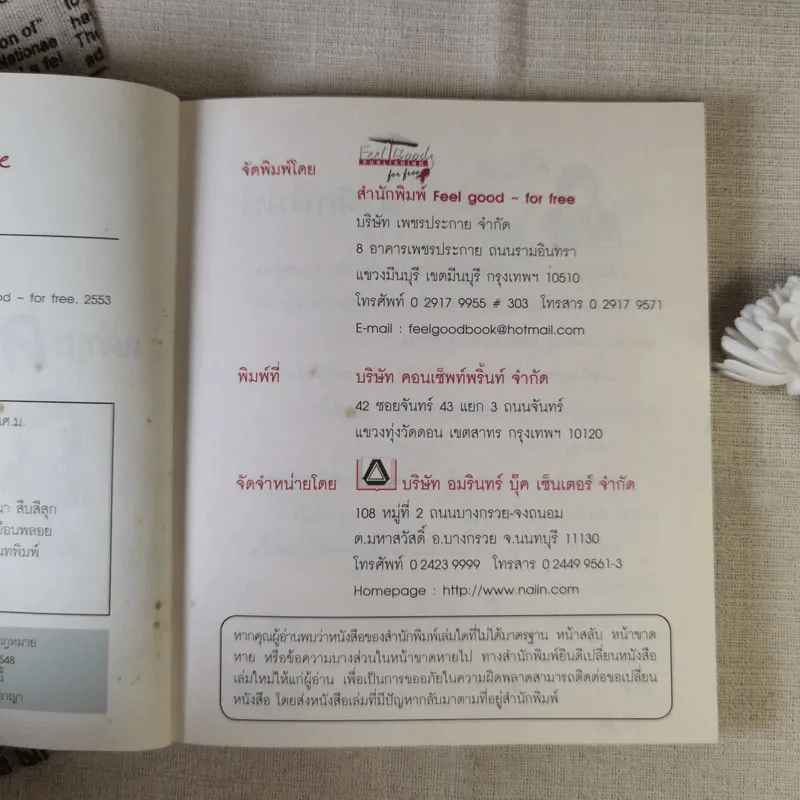 on of"
Nationae
fel
to
ha
The
ad
e
od ~ for free, 2553
ศ.ม.
นา สืบสีสุก
มือนพลอย
นทพิมพ์
กฎหมาย
2548
นี้
อาญา
จัดพิมพ์โดย
Feel Goods
PUBLISHING
for free
สำนักพิมพ์ Feel good ~ for free
บริษัท เพชรประกาย จำกัด
8 อาคารเพชรประกาย ถนนรามอินทรา
แขวงมีนบุรี เขตมีนบุรี กรุงเทพฯ 10510
โทรศัพท์ 0 2917 9955 # 303 โทรสาร 0 2917 9571
E-mail : feelgoodbook@hotmail.com
พิมพ์ที่ บริษัท คอนเซ็พท์พริ้นท์ จำกัด
42 ซอยจันทร์ 43 แยก 3 ถนนจันทร์
แขวงทุ่งวัดดอน เขตสาทร กรุงเทพฯ 10120
จัดจำหน่ายโดย บริษัท อมรินทร์ บุ๊ค เซ็นเตอร์ จำกัด
108 หมู่ที่ 2 ถนนบางกรวย-จงถนอม
ต.มหาสวัสดิ์ อ.บางกรวย จ.นนทบุรี 11130
โทรศัพท์ 0 2423 9999 โทรสาร 0 2449 9561-3
Homepage : http://www.naiin.com
หากคุณผู้อ่านพบว่าหนังสือของสำนักพิมพ์เล่มใดที่ไม่ได้มาตรฐาน หน้าสลับ หน้าขาด
หาย หรือข้อความบางส่วนในหน้าขาดหายไป ทางสำนักพิมพ์ยินดีเปลี่ยนหนังสือ
เล่มใหม่ให้แก่ผู้อ่าน เพื่อเป็นการขออภัยในความผิดพลาดสามารถติดต่อขอเปลี่ยน
หนังสือ โดยส่งหนังสือเล่มที่มีปัญหากลับมาตามที่อยู่สำนักพิมพ์